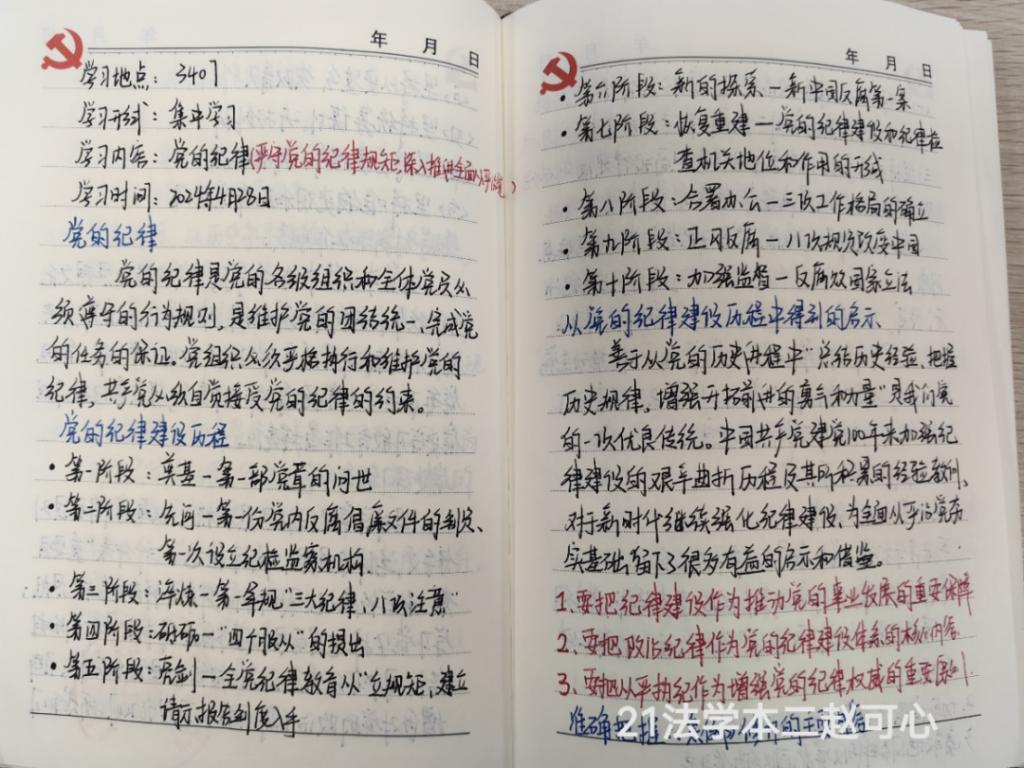 年 月 日
学习地点：3407
学习形式：集中学习
学习内容：党的纪律(严守党的纪律规矩，深入推进全面从严治党)
学习时间：2024年4月28日
党的纪律
党的纪律是党的各级组织和全体党员必
须遵守的行为规则，是维护党的团结统一、完成党
的任务的保证。党组织必须严格执行和维护党的
纪律，共产党必须自觉接受党的纪律的约束。
党的纪律建设历程
·第一阶段：奠基—第一部党章的问世
·第二阶段：先河—第一份党内反腐倡廉文件的制定、
第一次设立纪检监察机构
·第三阶段：淬炼—第一军规"三大纪律，八项注意"
·第四阶段：砥砺—"四个服从"的提出
·第五阶段：亮剑—全党纪律教育从"立规矩，建立
请示报告制度入手
年 月 日
·第六阶段：新的探索—新中国反腐第一案
·第七阶段：恢复重建—党的纪律建设和纪律检
查机关地位和作用的形成
·第八阶段：合署办公—三项工作格局的确立
·第九阶段：正风反腐—八项规定改变中国
·第十阶段：加强监督—反腐败国家立法
从党的纪律建设历程中得到的启示
善于从党的历史进程中"总结历史经验、把握
历史规律，增强开拓前进的勇气和力量"是我们党
的一项优良传统。中国共产党建党100年来加强纪
律建设的艰辛曲折历程及其所积累的经验教训，
对于新时代继续强化纪律建设、为全面从严治党夯
实基础留下了很多有益的启示和借鉴。
1、要把纪律建设作为推动党的事业发展的重要保障
2、要把政治纪律作为党的纪律建设体系的核心内容
3、要把从严执纪作为增强党的纪律权威的重要原则
准确把握
21法学本二赵可心